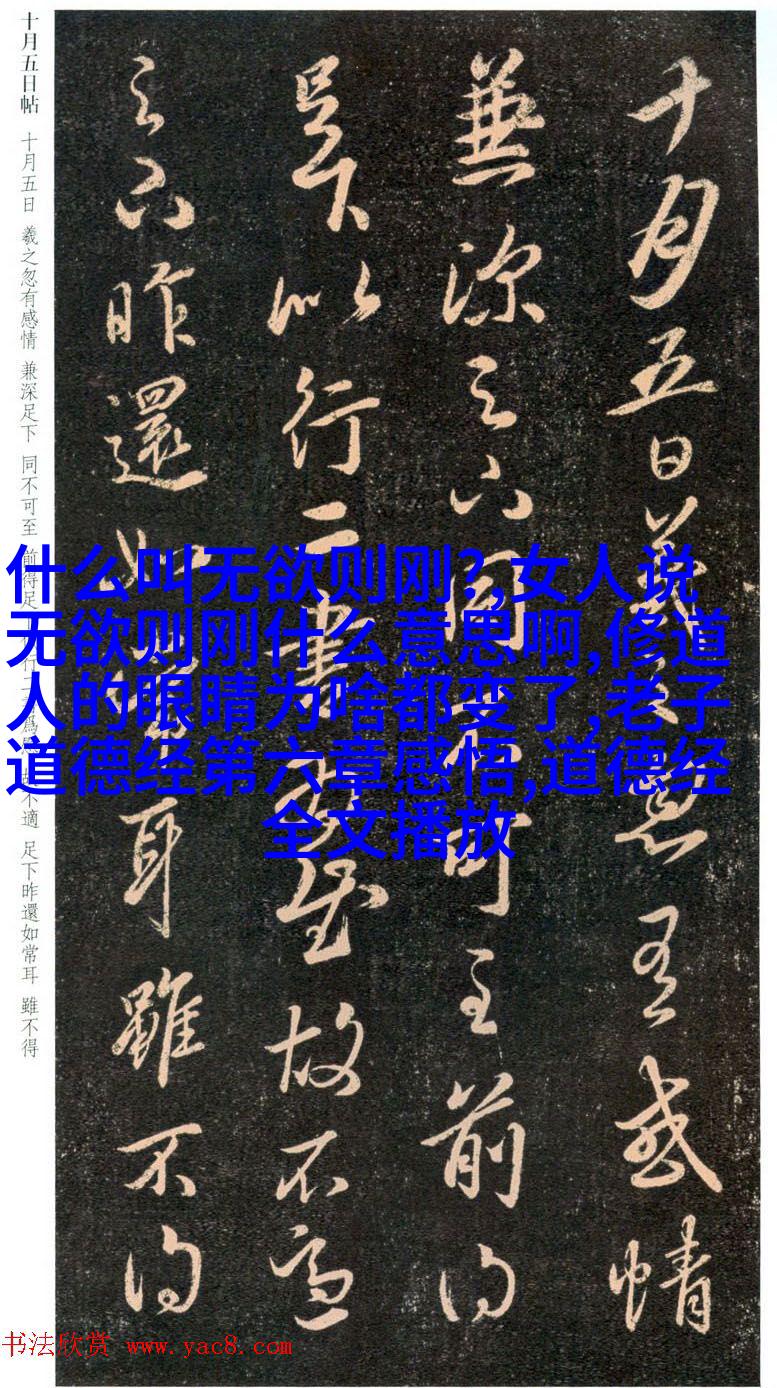 十月五日帖 十月五日 羲之忽有感情 兼深足下 同不可至 前得足 行二 爲 不適 足下昨還如常耳 雖不得
十月五日羲之忽有感情
兼深足下同不可至前得
足下以行二書 慰故不適
足下昨還如常耳雖不得
什么叫无欲则刚?,女人说
无欲则刚什么意思啊,修道
人的眼睛为啥都变了,老子
道德经第六章感悟,道德经
全文播放
书法欣赏 www.yac8.com